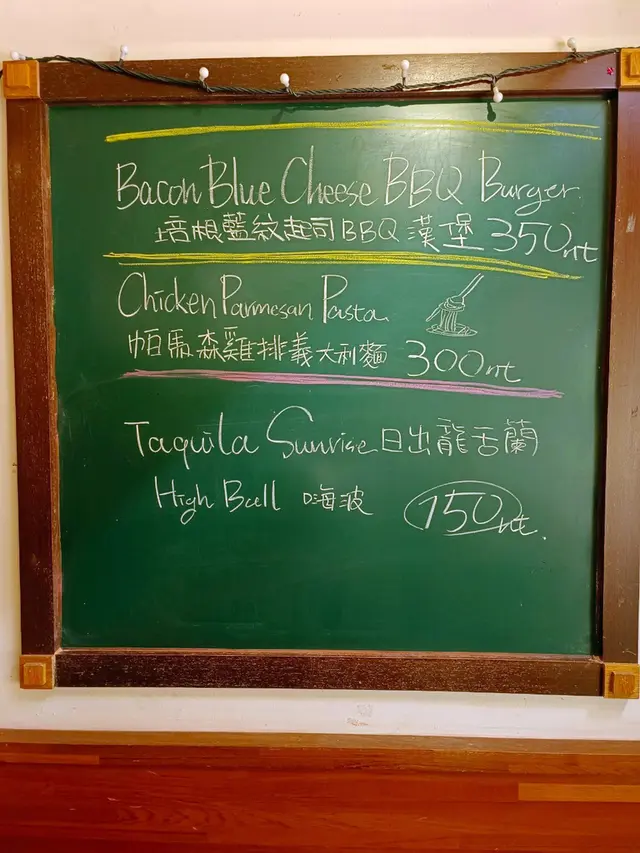 Bacon Blue Cheese BBQ Burger
培根藍紋起司BBQ 漢堡 350nt
Chicken Parmesan Pasta
帕馬森雞排義大利麵 300nt
Taquila Sunrise 日出龍舌蘭
High Ball 嗨波 150nt.